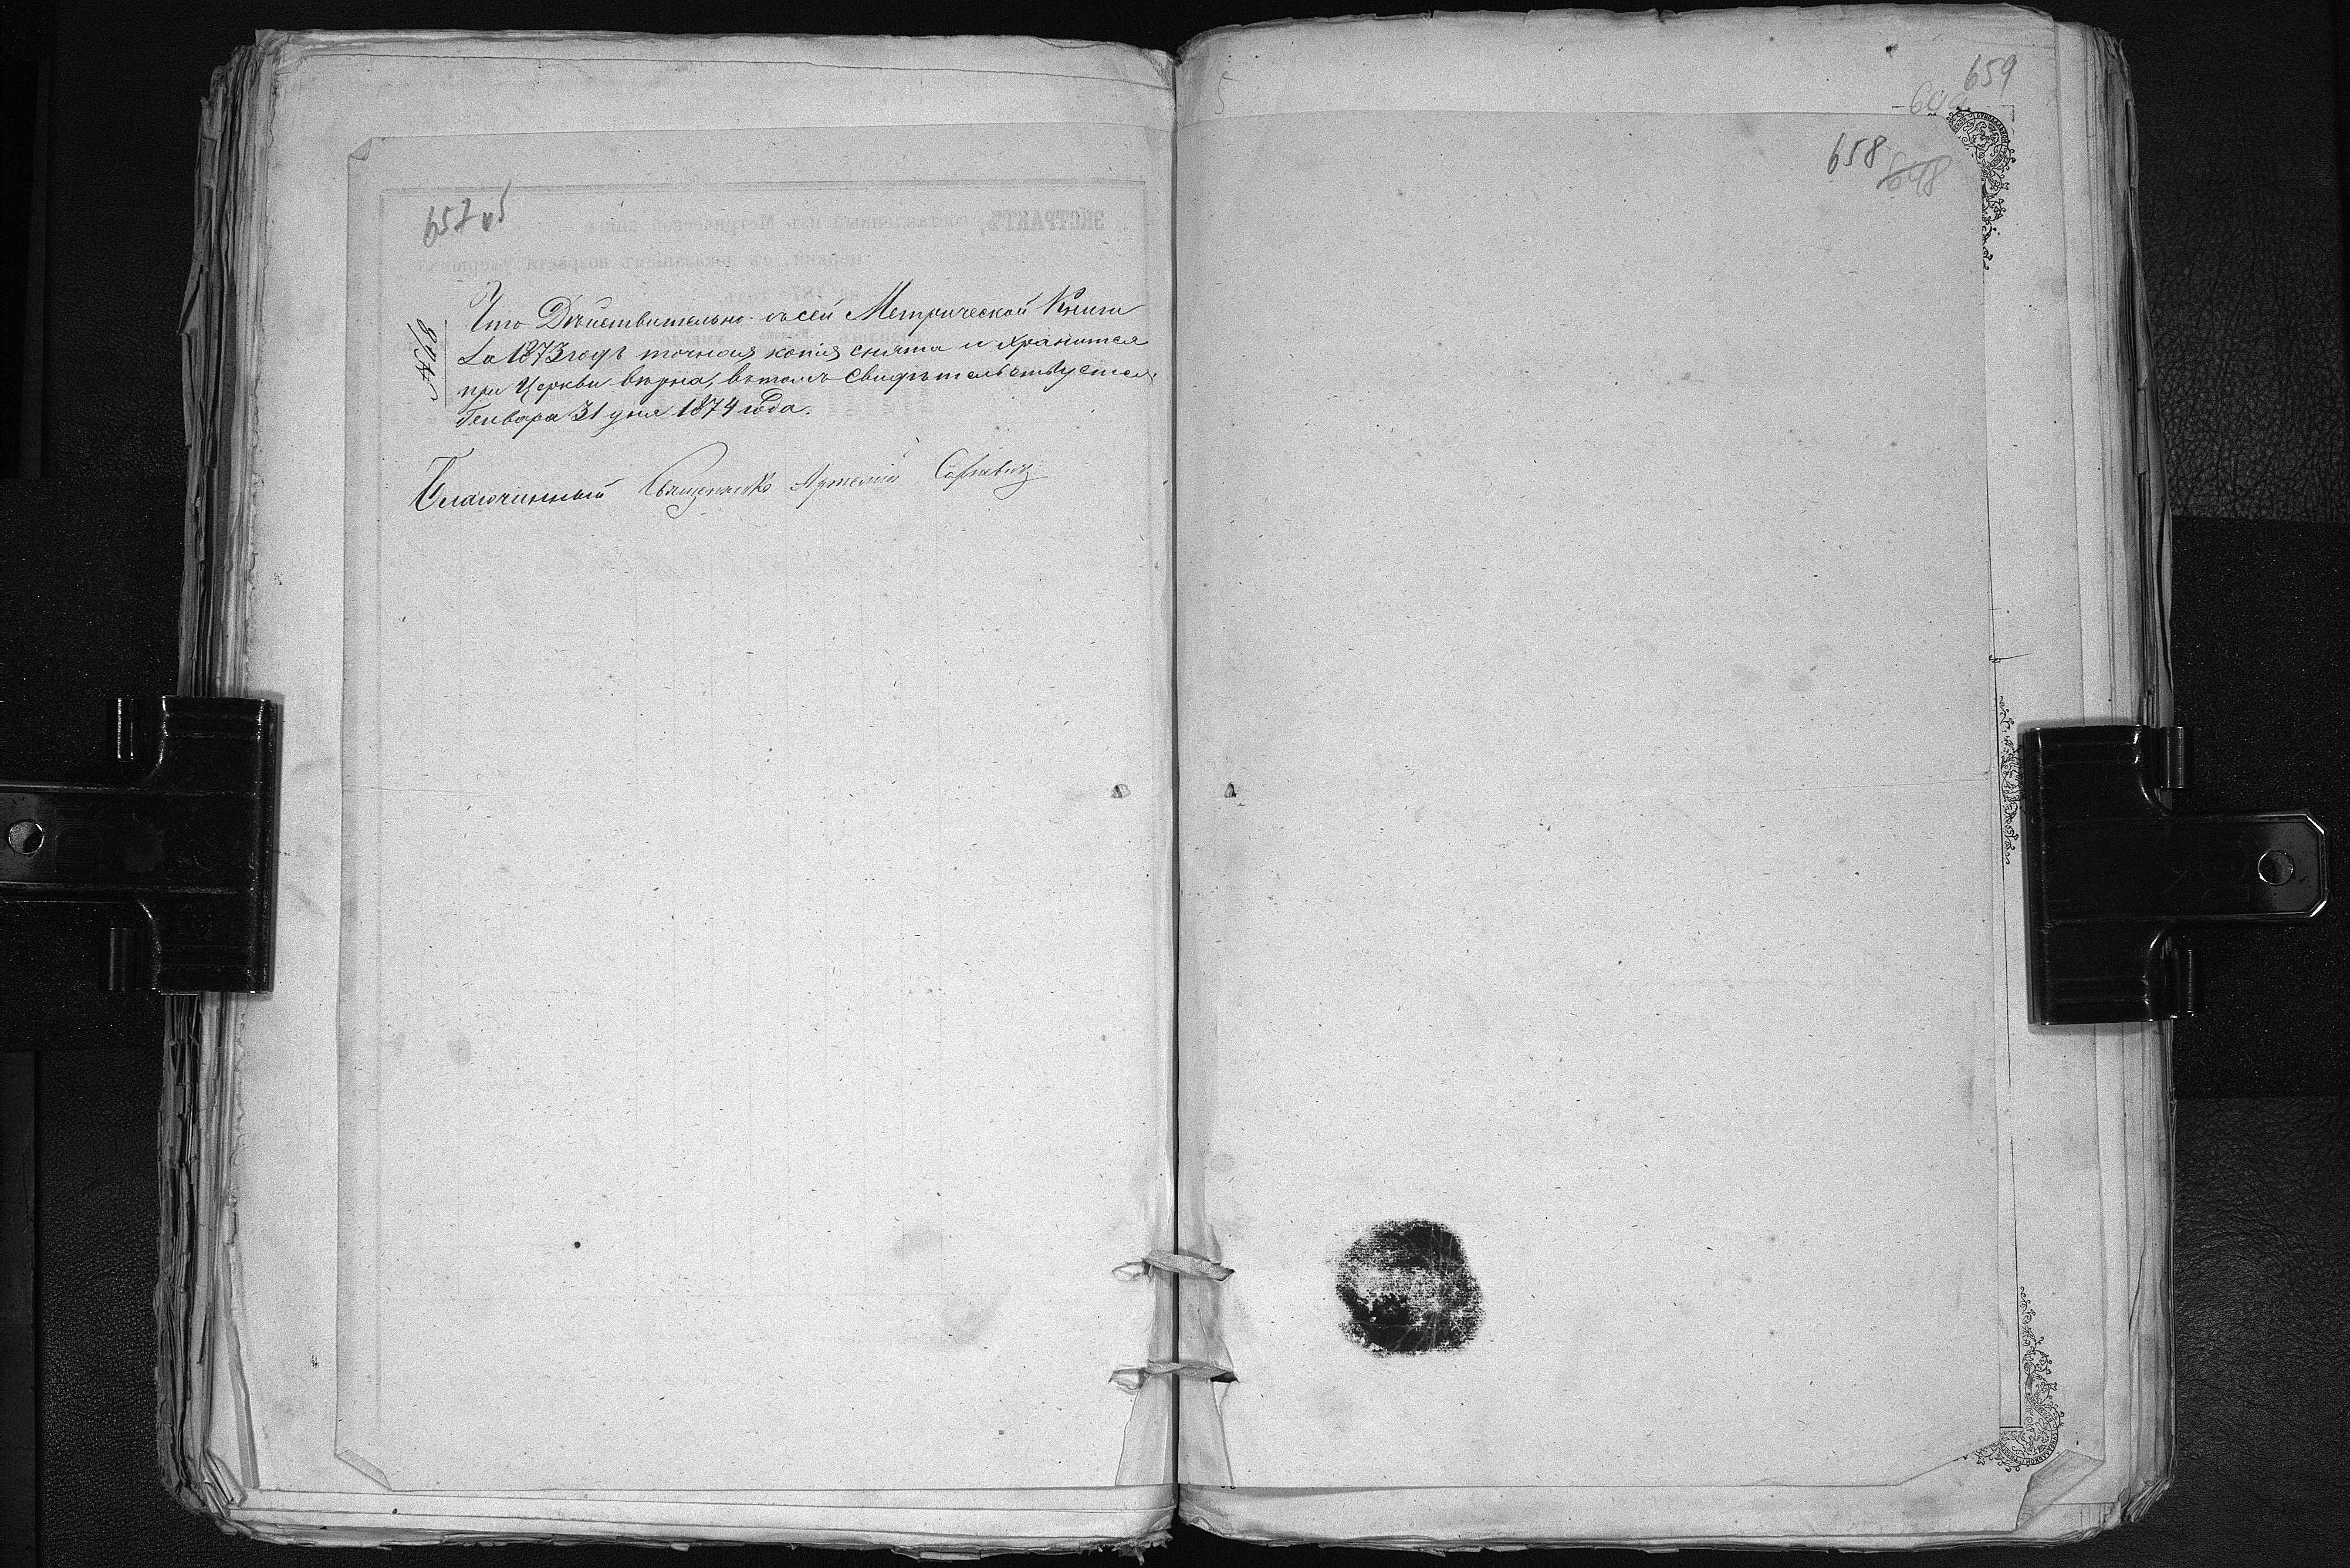 657 об
Что Дѣйствительно съ сей Метрической Книги
за 1873 годъ точная копія снята и хранится
при Церкви вѣрна, въ томъ свидѣтельствуется.
Генваря 31 дня 1874 года.
№ 48
Благочинный Священникъ Артемій
659
658 648